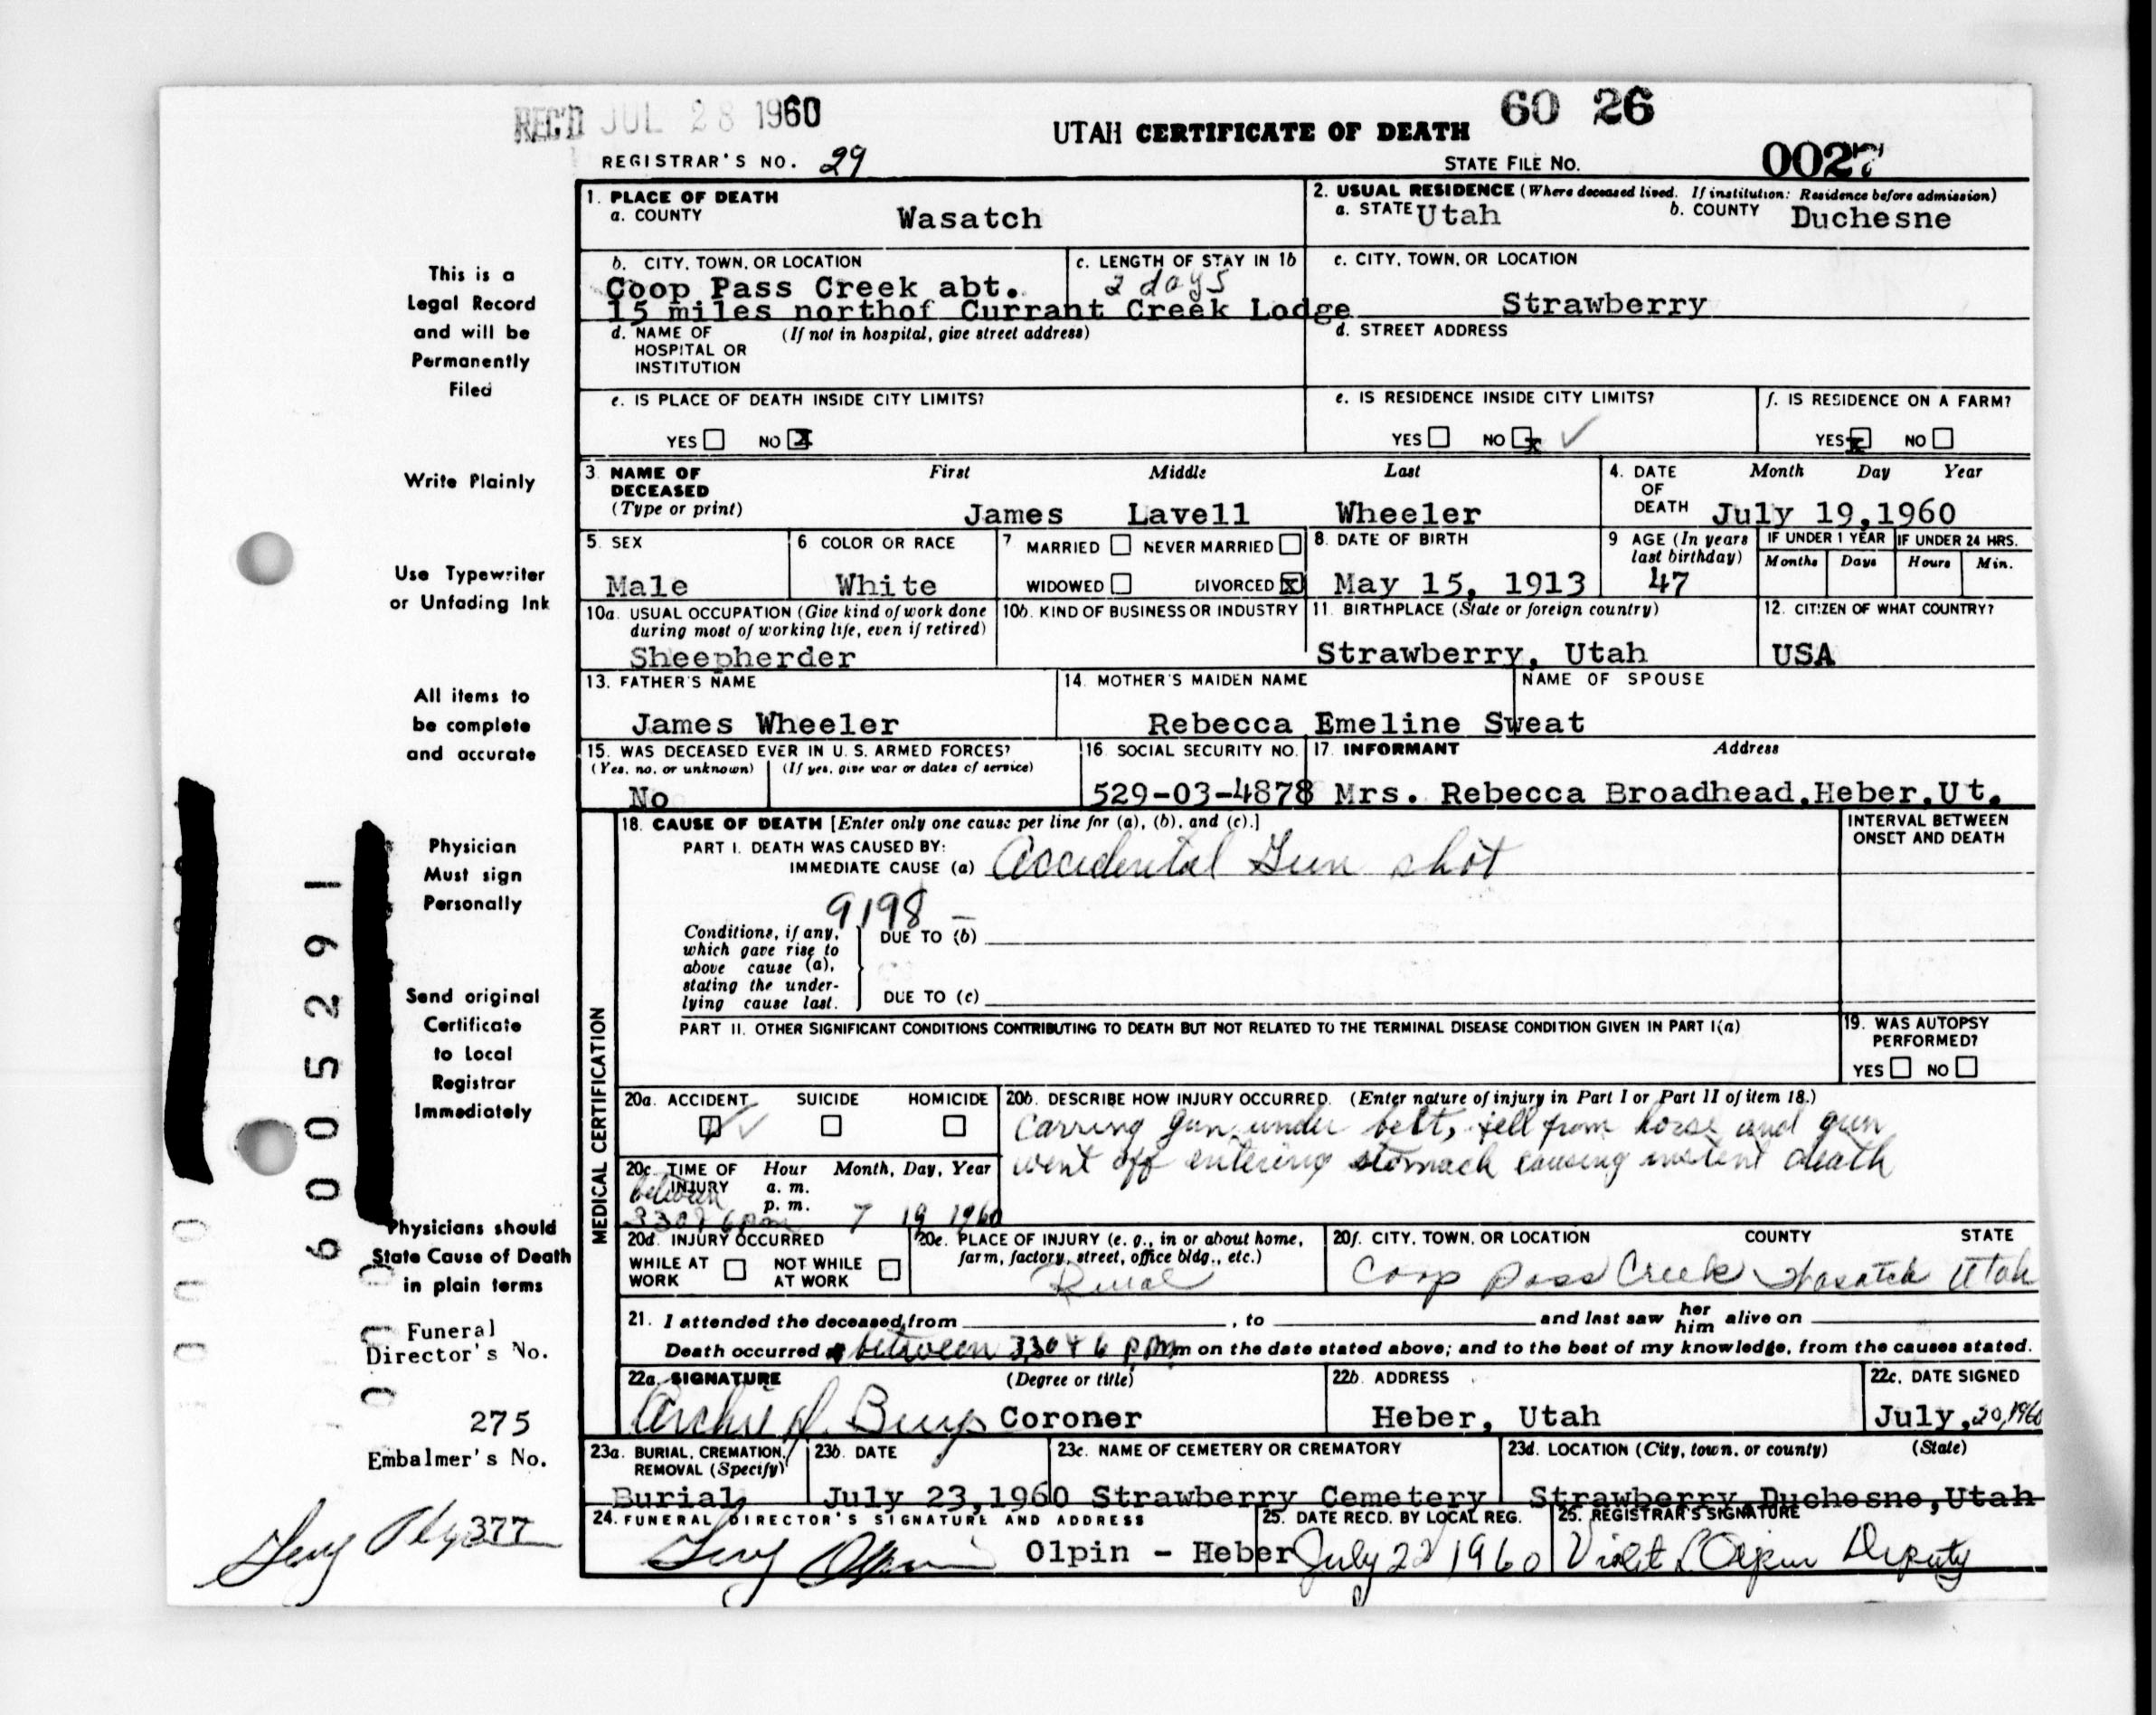 REC'D JUL 28 1960
UTAH CERTIFICATE OF DEATH 60 26
REGISTRAR'S NO. 29
STATE FILE NO. 0027
This is a
Legal Record
and will be
Permanently
Filed
Write Plainly
Use Typewriter
or Unfading Ink
All items to
be complete
and accurate
Physician
Must sign
Personally
Send original
Certificate
to Local
Registrar
Immediately
Physicians should
State Cause of Death
in plain terms
Funeral
Director's No.
275
Embalmer's No.
377
6005291
1. PLACE OF DEATH
a. COUNTY Wasatch
2. USUAL RESIDENCE (Where deceased lived. If institution: Residence before admission)
a. STATE Utah b. COUNTY Duchesne
b. CITY, TOWN, OR LOCATION
Coop Pass Creek abt.
15 miles northof Currant Creek Lodge
c. LENGTH OF STAY IN 1b
2 days
c. CITY, TOWN, OR LOCATION
Strawberry
d. NAME OF (If not in hospital, give street address)
HOSPITAL OR
INSTITUTION
d. STREET ADDRESS
e. IS PLACE OF DEATH INSIDE CITY LIMITS?
YES NO X
e. IS RESIDENCE INSIDE CITY LIMITS?
YES NO x ✓
f. IS RESIDENCE ON A FARM?
YES x NO
3. NAME OF First Middle Last
DECEASED
(Type or print) James Lavell Wheeler
4. DATE Month Day Year
OF
DEATH July 19,1960
5. SEX
Male
6 COLOR OR RACE
White
7 MARRIED NEVER MARRIED
WIDOWED DIVORCED X
8. DATE OF BIRTH
May 15, 1913
9 AGE (In years
last birthday)
47
IF UNDER 1 YEAR IF UNDER 24 HRS.
Months Days Hours Min.
10a. USUAL OCCUPATION (Give kind of work done
during most of working life, even if retired)
Sheepherder
10b. KIND OF BUSINESS OR INDUSTRY
11. BIRTHPLACE (State or foreign country)
Strawberry, Utah
12. CITIZEN OF WHAT COUNTRY?
USA
13. FATHER'S NAME
James Wheeler
14. MOTHER'S MAIDEN NAME
Rebecca Emeline Sweat
NAME OF SPOUSE
15. WAS DECEASED EVER IN U. S. ARMED FORCES?
(Yes, no, or unknown) (If yes, give war or dates of service)
No
16. SOCIAL SECURITY NO.
529-03-4878
17. INFORMANT Address
Mrs. Rebecca Broadhead,Heber,Ut.
MEDICAL CERTIFICATION
18. CAUSE OF DEATH [Enter only one cause per line for (a), (b), and (c).]
PART I. DEATH WAS CAUSED BY:
IMMEDIATE CAUSE (a) Accidental Gun shot
INTERVAL BETWEEN
ONSET AND DEATH
9198 -
Conditions, if any,
which gave rise to
above cause (a),
stating the under-
lying cause last.
DUE TO (b)
DUE TO (c)
PART II. OTHER SIGNIFICANT CONDITIONS CONTRIBUTING TO DEATH BUT NOT RELATED TO THE TERMINAL DISEASE CONDITION GIVEN IN PART I(a)
19. WAS AUTOPSY
PERFORMED?
YES NO
20a. ACCIDENT SUICIDE HOMICIDE
20b. DESCRIBE HOW INJURY OCCURRED. (Enter nature of injury in Part I or Part II of item 18.)
Carring gun under belt, fell from horse and gun
went off entering stomach causing instent death
20c. TIME OF Hour Month, Day, Year
INJURY a. m.
p. m.
between
330 & 6 pm 7 19 1960
20d. INJURY OCCURRED
WHILE AT WORK NOT WHILE AT WORK
20e. PLACE OF INJURY (e. g., in or about home,
farm, factory, street, office bldg., etc.)
Rural
20f. CITY, TOWN, OR LOCATION COUNTY STATE
Coop Pass Creek Wasatch Utah
21. I attended the deceased from , to and last saw her him alive on
Death occurred between 3,30 & 6 P.M. m on the date stated above; and to the best of my knowledge, from the causes stated.
22a. SIGNATURE (Degree or title)
Archie Coroner
22b. ADDRESS
Heber, Utah
22c. DATE SIGNED
July, 20,1960
23a. BURIAL, CREMATION,
REMOVAL (Specify)
Burial
23b. DATE
July 23,1960
23c. NAME OF CEMETERY OR CREMATORY
Strawberry Cemetery
23d. LOCATION (City, town, or county) (State)
Strawberry Duchesne,Utah
24. FUNERAL DIRECTOR'S SIGNATURE AND ADDRESS
Olpin - Heber
25. DATE RECD. BY LOCAL REG.
July 22 1960
25. REGISTRAR'S SIGNATURE
Violet Deputy